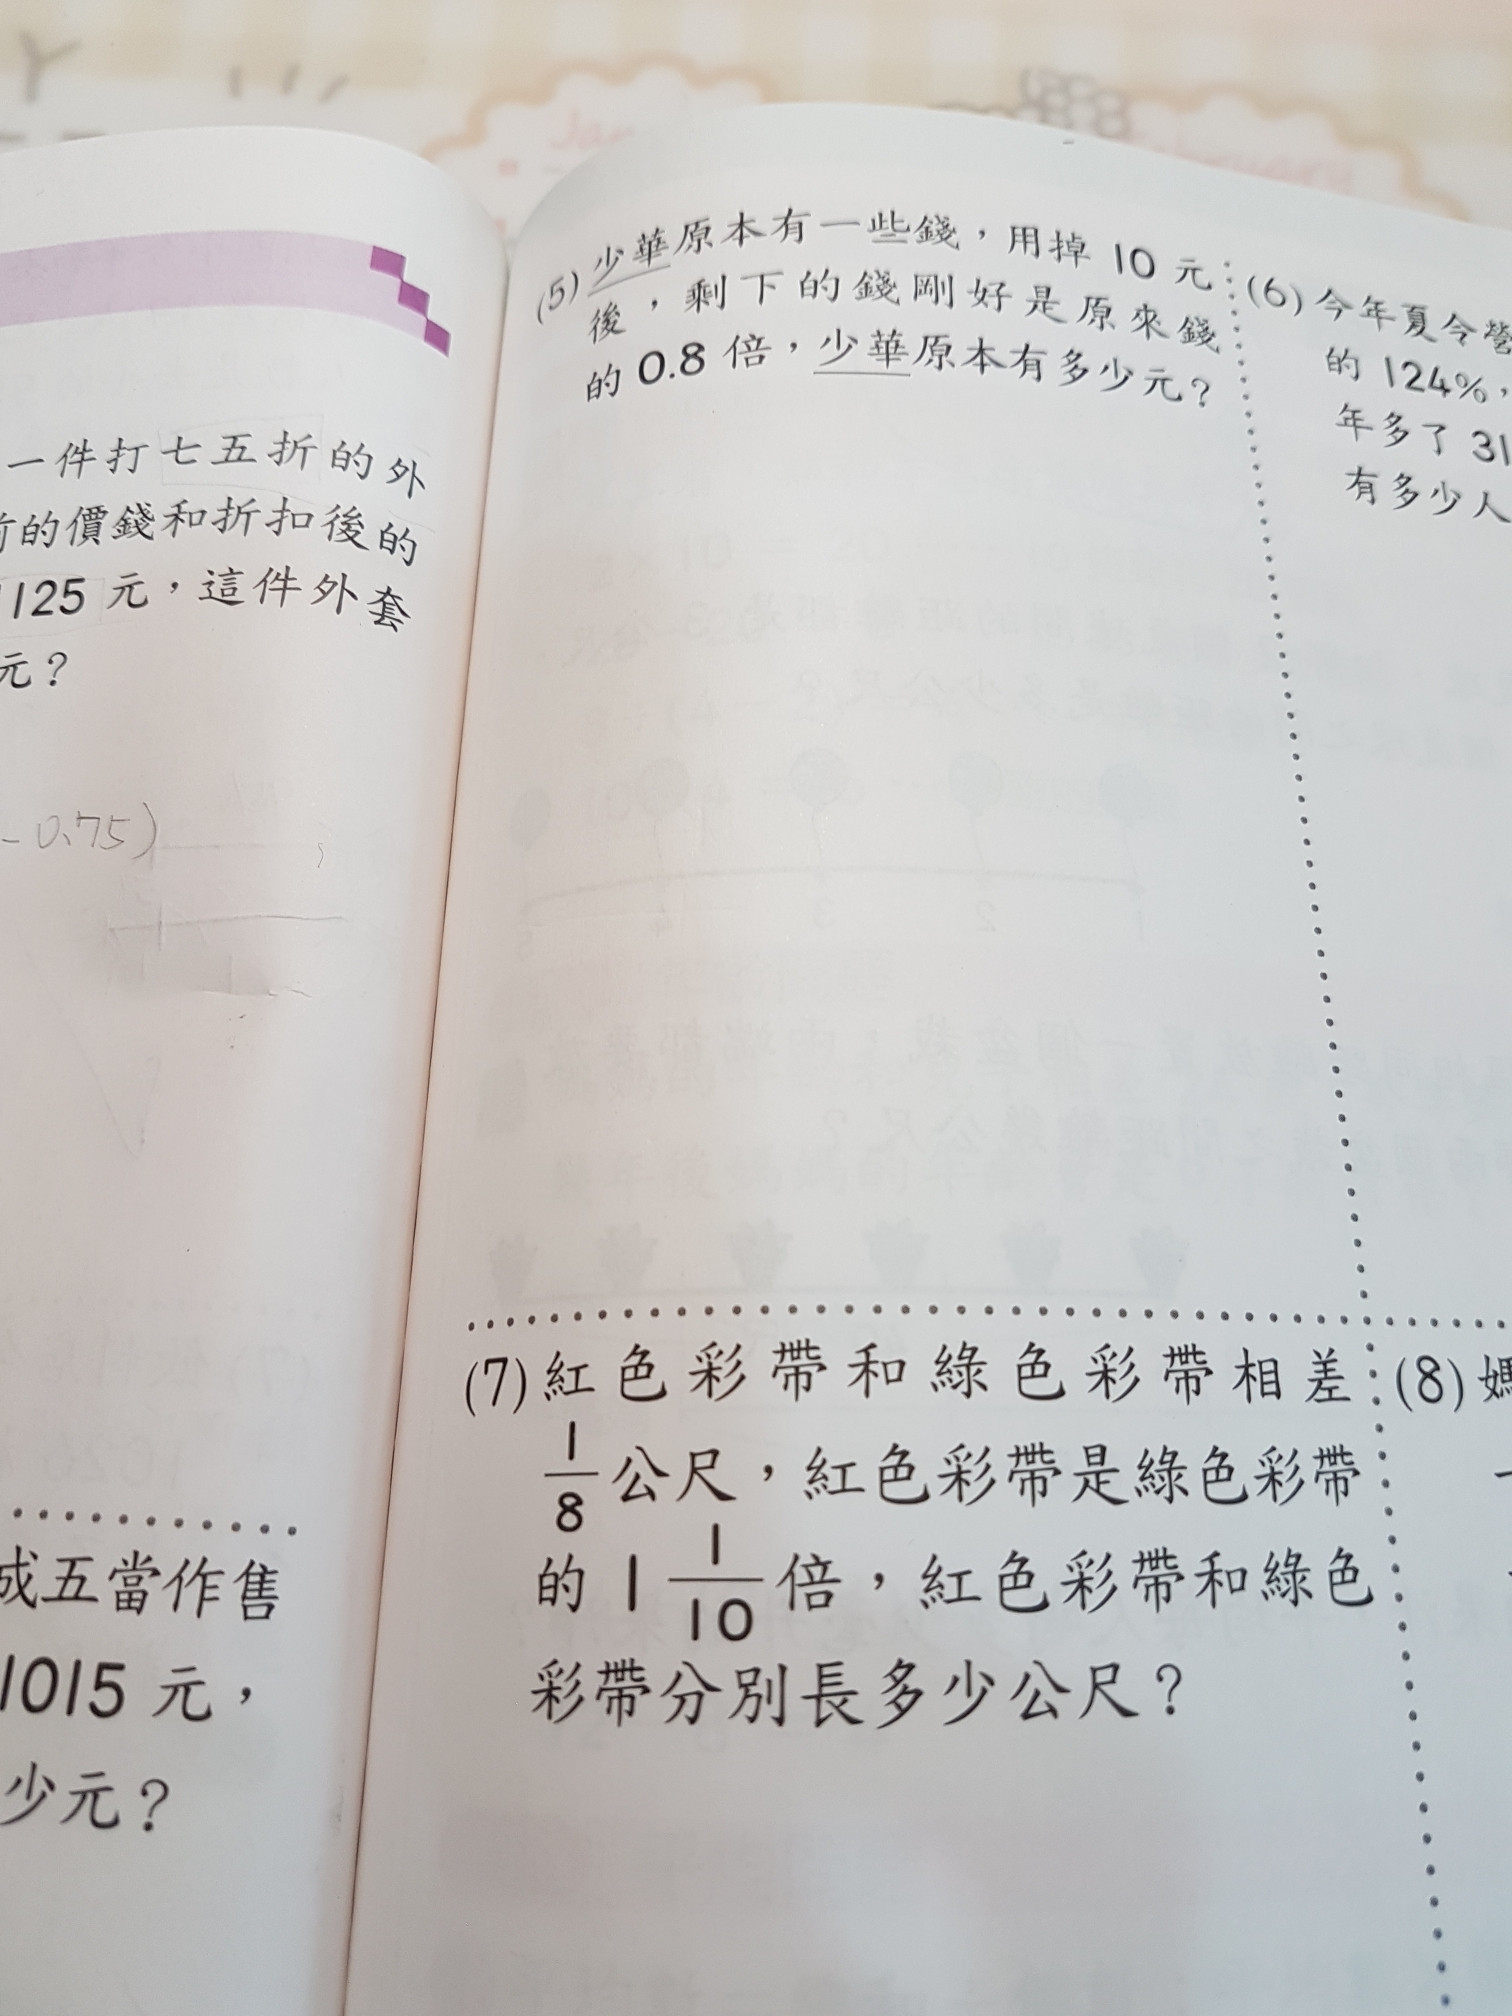 一件打七五折的外
的價錢和折扣後的
1125元，這件外套
元？
- 0.75)
成五當作售
1015元，
少元？
(5)少華原本有一些錢，用掉10元
後，剩下的錢剛好是原來錢
的0.8倍，少華原本有多少元？
(6)今年夏令營
的124%，
年多了31
有多少人
(7)紅色彩帶和綠色彩帶相差
1/8公尺，紅色彩帶是綠色彩帶
的1 1/10倍，紅色彩帶和綠色
彩帶分別長多少公尺？
(8)媽